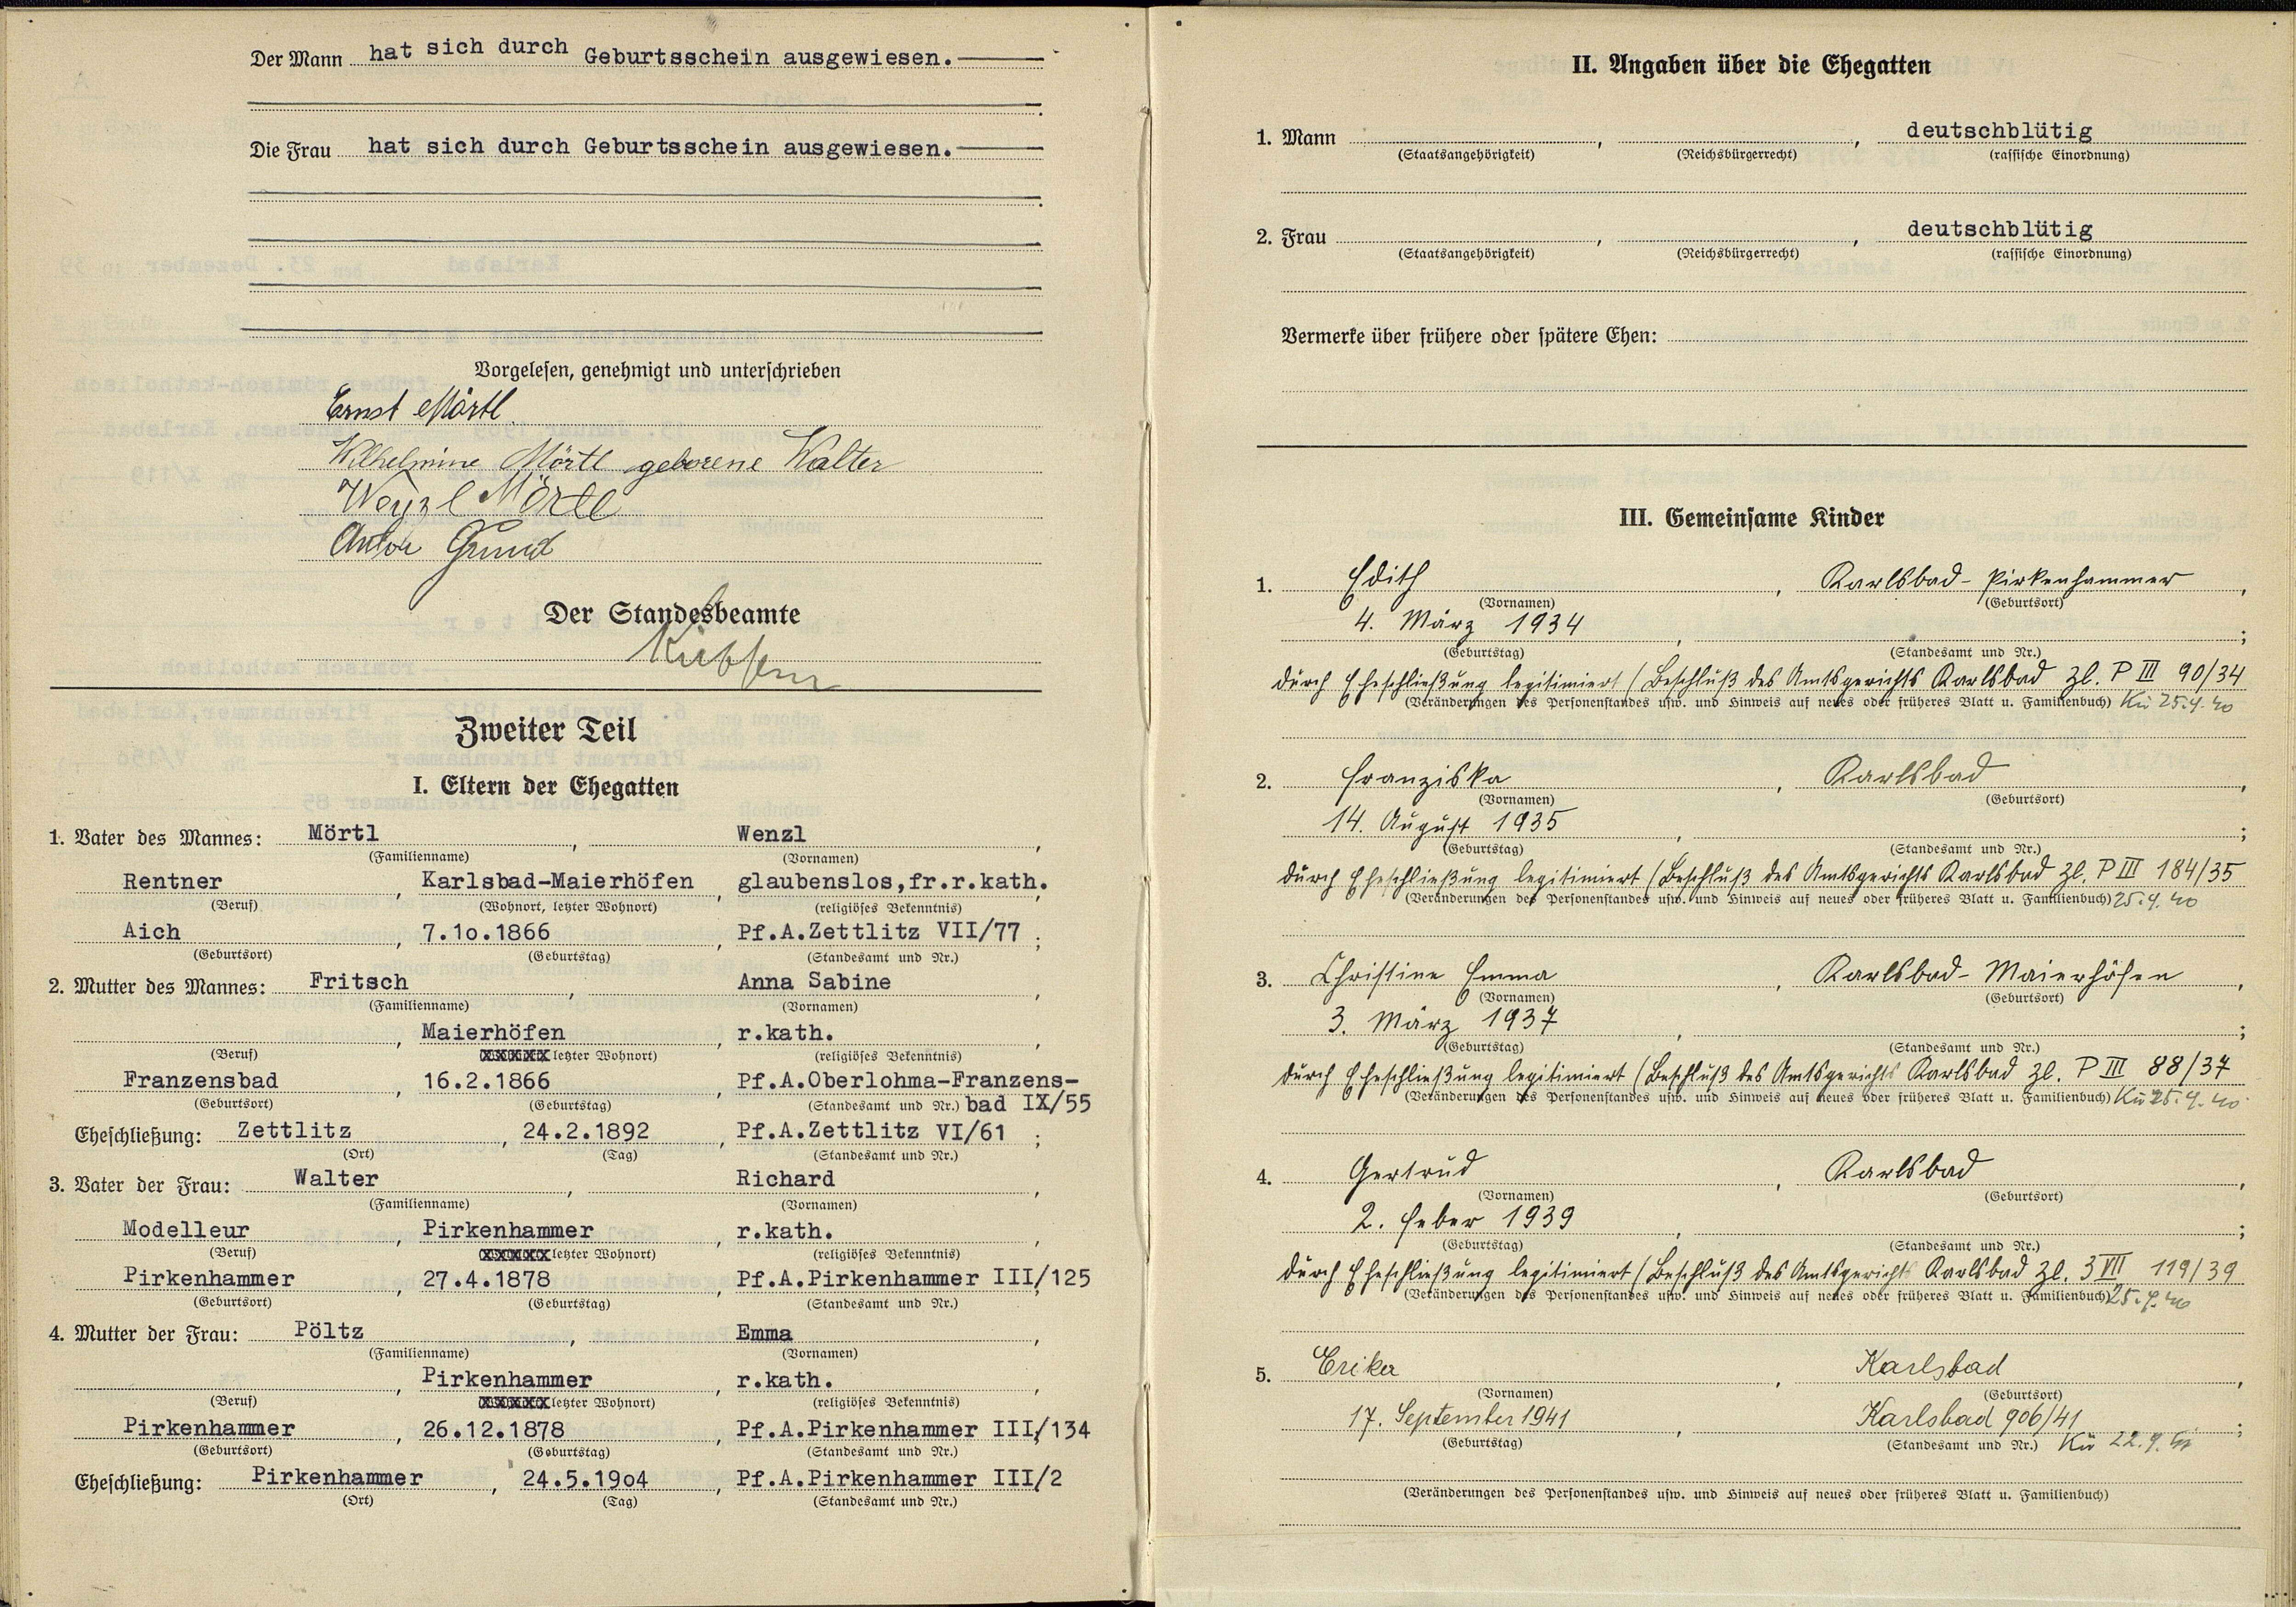 Der Mann hat sich durch Geburtsschein ausgewiesen.
Die Frau hat sich durch Geburtsschein ausgewiesen.
Vorgelesen, genehmigt und unterschrieben
Ernst Mörtl
Wilhelmine Mörtl geborene Walter
Wenzl Mörtl
Anton Grund
Der Standesbeamte
Zweiter Teil
I. Eltern der Ehegatten
1. Vater des Mannes: Mörtl, Wenzl,
(Familienname) (Vornamen)
Rentner, Karlsbad-Maierhöfen, glaubenslos,fr.r.kath.,
(Beruf) (Wohnort, letzter Wohnort) (religiöses Bekenntnis)
Aich, 7.10.1866, Pf.A.Zettlitz VII/77;
(Geburtsort) (Geburtstag) (Standesamt und Nr.)
2. Mutter des Mannes: Fritsch, Anna Sabine,
(Familienname) (Vornamen)
, Maierhöfen, r.kath.,
(Beruf) letzter Wohnort) (religiöses Bekenntnis)
Franzensbad, 16.2.1866, Pf.A.Oberlohma-Franzens-
(Geburtsort) (Geburtstag) (Standesamt und Nr.) bad IX/55
Eheschließung: Zettlitz, 24.2.1892, Pf.A.Zettlitz VI/61;
(Ort) (Tag) (Standesamt und Nr.)
3. Vater der Frau: Walter, Richard,
(Familienname) (Vornamen)
Modelleur, Pirkenhammer, r.kath.,
(Beruf) letzter Wohnort) (religiöses Bekenntnis)
Pirkenhammer, 27.4.1878, Pf.A.Pirkenhammer III/125;
(Geburtsort) (Geburtstag) (Standesamt und Nr.)
4. Mutter der Frau: Pöltz, Emma,
(Familienname) (Vornamen)
, Pirkenhammer, r.kath.,
(Beruf) letzter Wohnort) (religiöses Bekenntnis)
Pirkenhammer, 26.12.1878, Pf.A.Pirkenhammer III/134;
(Geburtsort) (Geburtstag) (Standesamt und Nr.)
Eheschließung: Pirkenhammer, 24.5.1904, Pf.A.Pirkenhammer III/2
(Ort) (Tag) (Standesamt und Nr.)
II. Angaben über die Ehegatten
1. Mann , , deutschblütig
(Staatsangehörigkeit) (Reichsbürgerrecht) (rassische Einordnung)
2. Frau , , deutschblütig
(Staatsangehörigkeit) (Reichsbürgerrecht) (rassische Einordnung)
Vermerke über frühere oder spätere Ehen:
III. Gemeinsame Kinder
1. Edith, Karlsbad-Pirkenhammer,
(Vornamen) (Geburtsort)
4. März 1934, ;
(Geburtstag) (Standesamt und Nr.)
durch Eheschließung legitimiert (Beschluß des Amtsgerichts Karlsbad Zl. P III 90/34
(Veränderungen des Personenstandes usw. und Hinweis auf neues oder früheres Blatt u. Familienbuch) Kü 25.4.40
2. Franziska, Karlsbad,
(Vornamen) (Geburtsort)
14. August 1935, ;
(Geburtstag) (Standesamt und Nr.)
durch Eheschließung legitimiert (Beschluß des Amtsgerichts Karlsbad Zl. P III 184/35
(Veränderungen des Personenstandes usw. und Hinweis auf neues oder früheres Blatt u. Familienbuch) 25.4.40
3. Christine Emma, Karlsbad-Maierhöfen,
(Vornamen) (Geburtsort)
3. März 1937, ;
(Geburtstag) (Standesamt und Nr.)
durch Eheschließung legitimiert (Beschluß des Amtsgerichts Karlsbad Zl. P III 88/37
(Veränderungen des Personenstandes usw. und Hinweis auf neues oder früheres Blatt u. Familienbuch) Kü 25.4.40
4. Gertrud, Karlsbad,
(Vornamen) (Geburtsort)
2. Feber 1939, ;
(Geburtstag) (Standesamt und Nr.)
durch Eheschließung legitimiert (Beschluß des Amtsgerichts Karlsbad Zl. 3 VII 119/39
(Veränderungen des Personenstandes usw. und Hinweis auf neues oder früheres Blatt u. Familienbuch) 25.4.40
5. Erika, Karlsbad,
(Vornamen) (Geburtsort)
17. September 1941, Karlsbad 906/41;
(Geburtstag) (Standesamt und Nr.) Kü 22.9.41
(Veränderungen des Personenstandes usw. und Hinweis auf neues oder früheres Blatt u. Familienbuch)